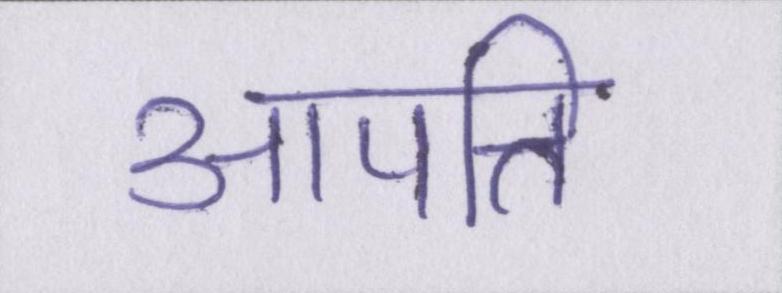 आपत्ति